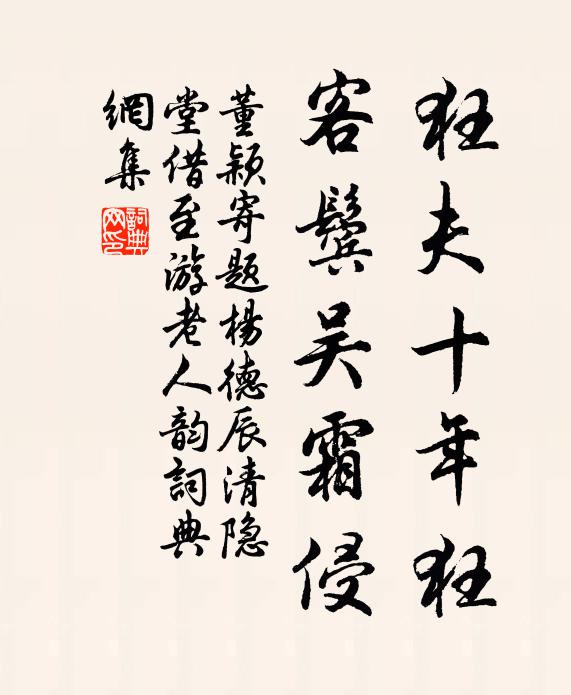 狂夫十年狂
客鬓吴霜侵
董颖寄题杨德辰清隐
堂借至游老人韵词典
網集
詞典网印